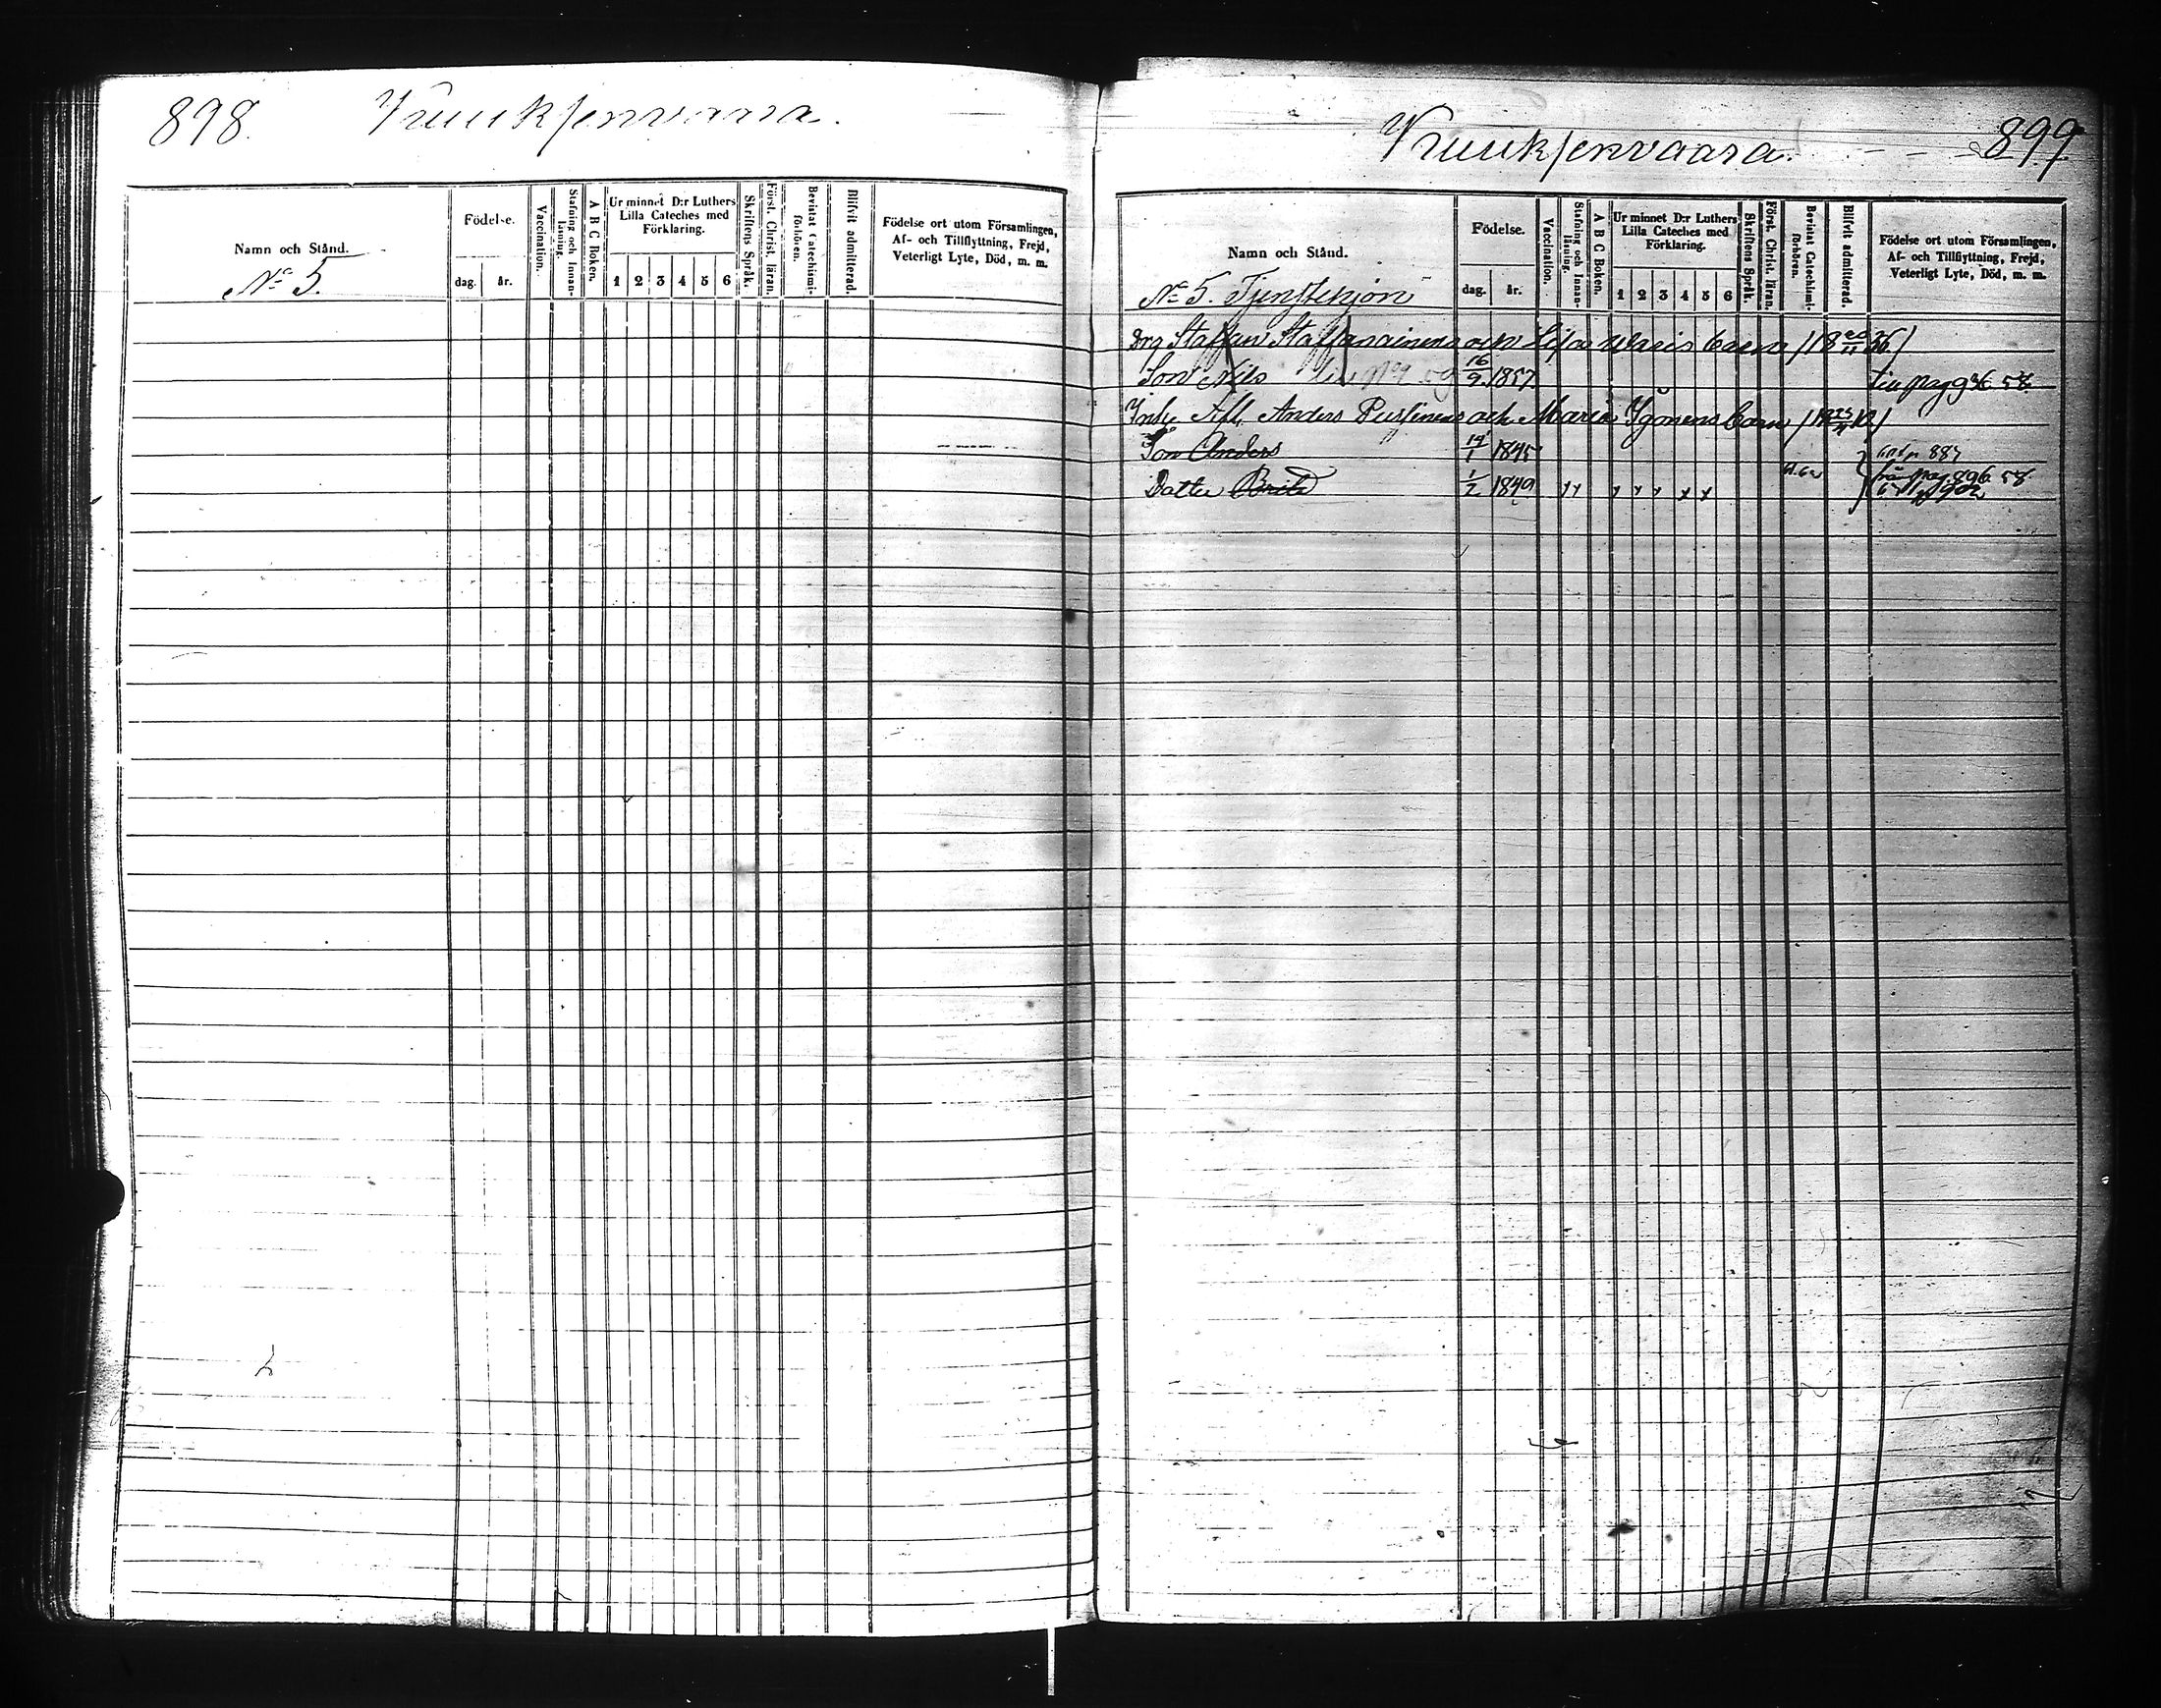 898. Kruuksenvaara.
Namn och Stånd.
Födelse.
dag. år.
Vaccination.
Stafning och Innan-läsning.
A B C Boken.
Ur minnet D:r Luthers
Lilla Cateches med
Förklaring.
1 2 3 4 5 6
Skriftens Språk.
Först. Christ. läran.
Bevistat Catechismi-förhören.
Blifvit admitterad.
Födelse ort utom Församlingen,
Af- och Tillflyttning, Frejd,
Veterligt Lyte, Död, m. m.
No 5.
Kruuksenvaara. 899
Namn och Stånd.
Födelse.
dag. år.
Vaccination.
Stafning och Innan-läsning.
A B C Boken.
Ur minnet D:r Luthers
Lilla Cateches med
Förklaring.
1 2 3 4 5 6
Skriftens Språk.
Först. Christ. läran.
Bevistat Catechismi-förhören.
Blifvit admitterad.
Födelse ort utom Församlingen,
Af- och Tillflyttning, Frejd,
Veterligt Lyte, Död, m. m.
No 5. Tjenstehjon
Drg Staffan Staffanainens och Lisa barn
Son Nils 16/9 1857 till pag 936 58.
Inh. Afl. Anders och Maria Igonens barn
Son Anders 14/1 1845 887
Dotter Brita 1/2 1849 x x x x x x x från pag. 896 58.
902